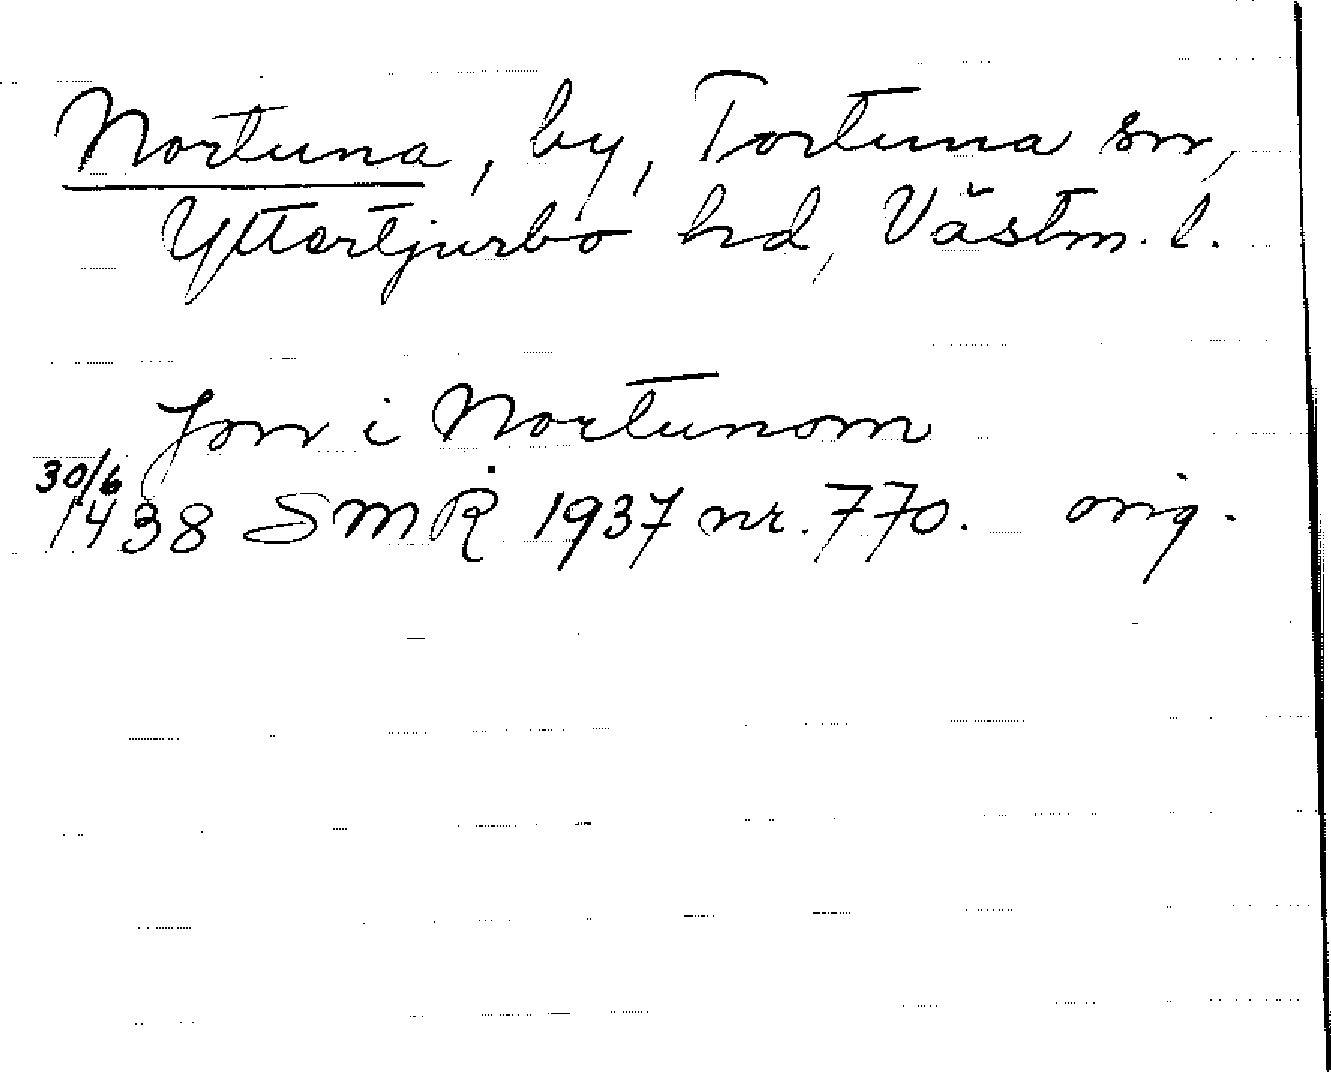 Nortuna, by, Tortuna sn,
Yttertjurbo hd, Västm. l.
Jon i Nortunom
30/6
1438 SMR 1937 nr. 770. orig.